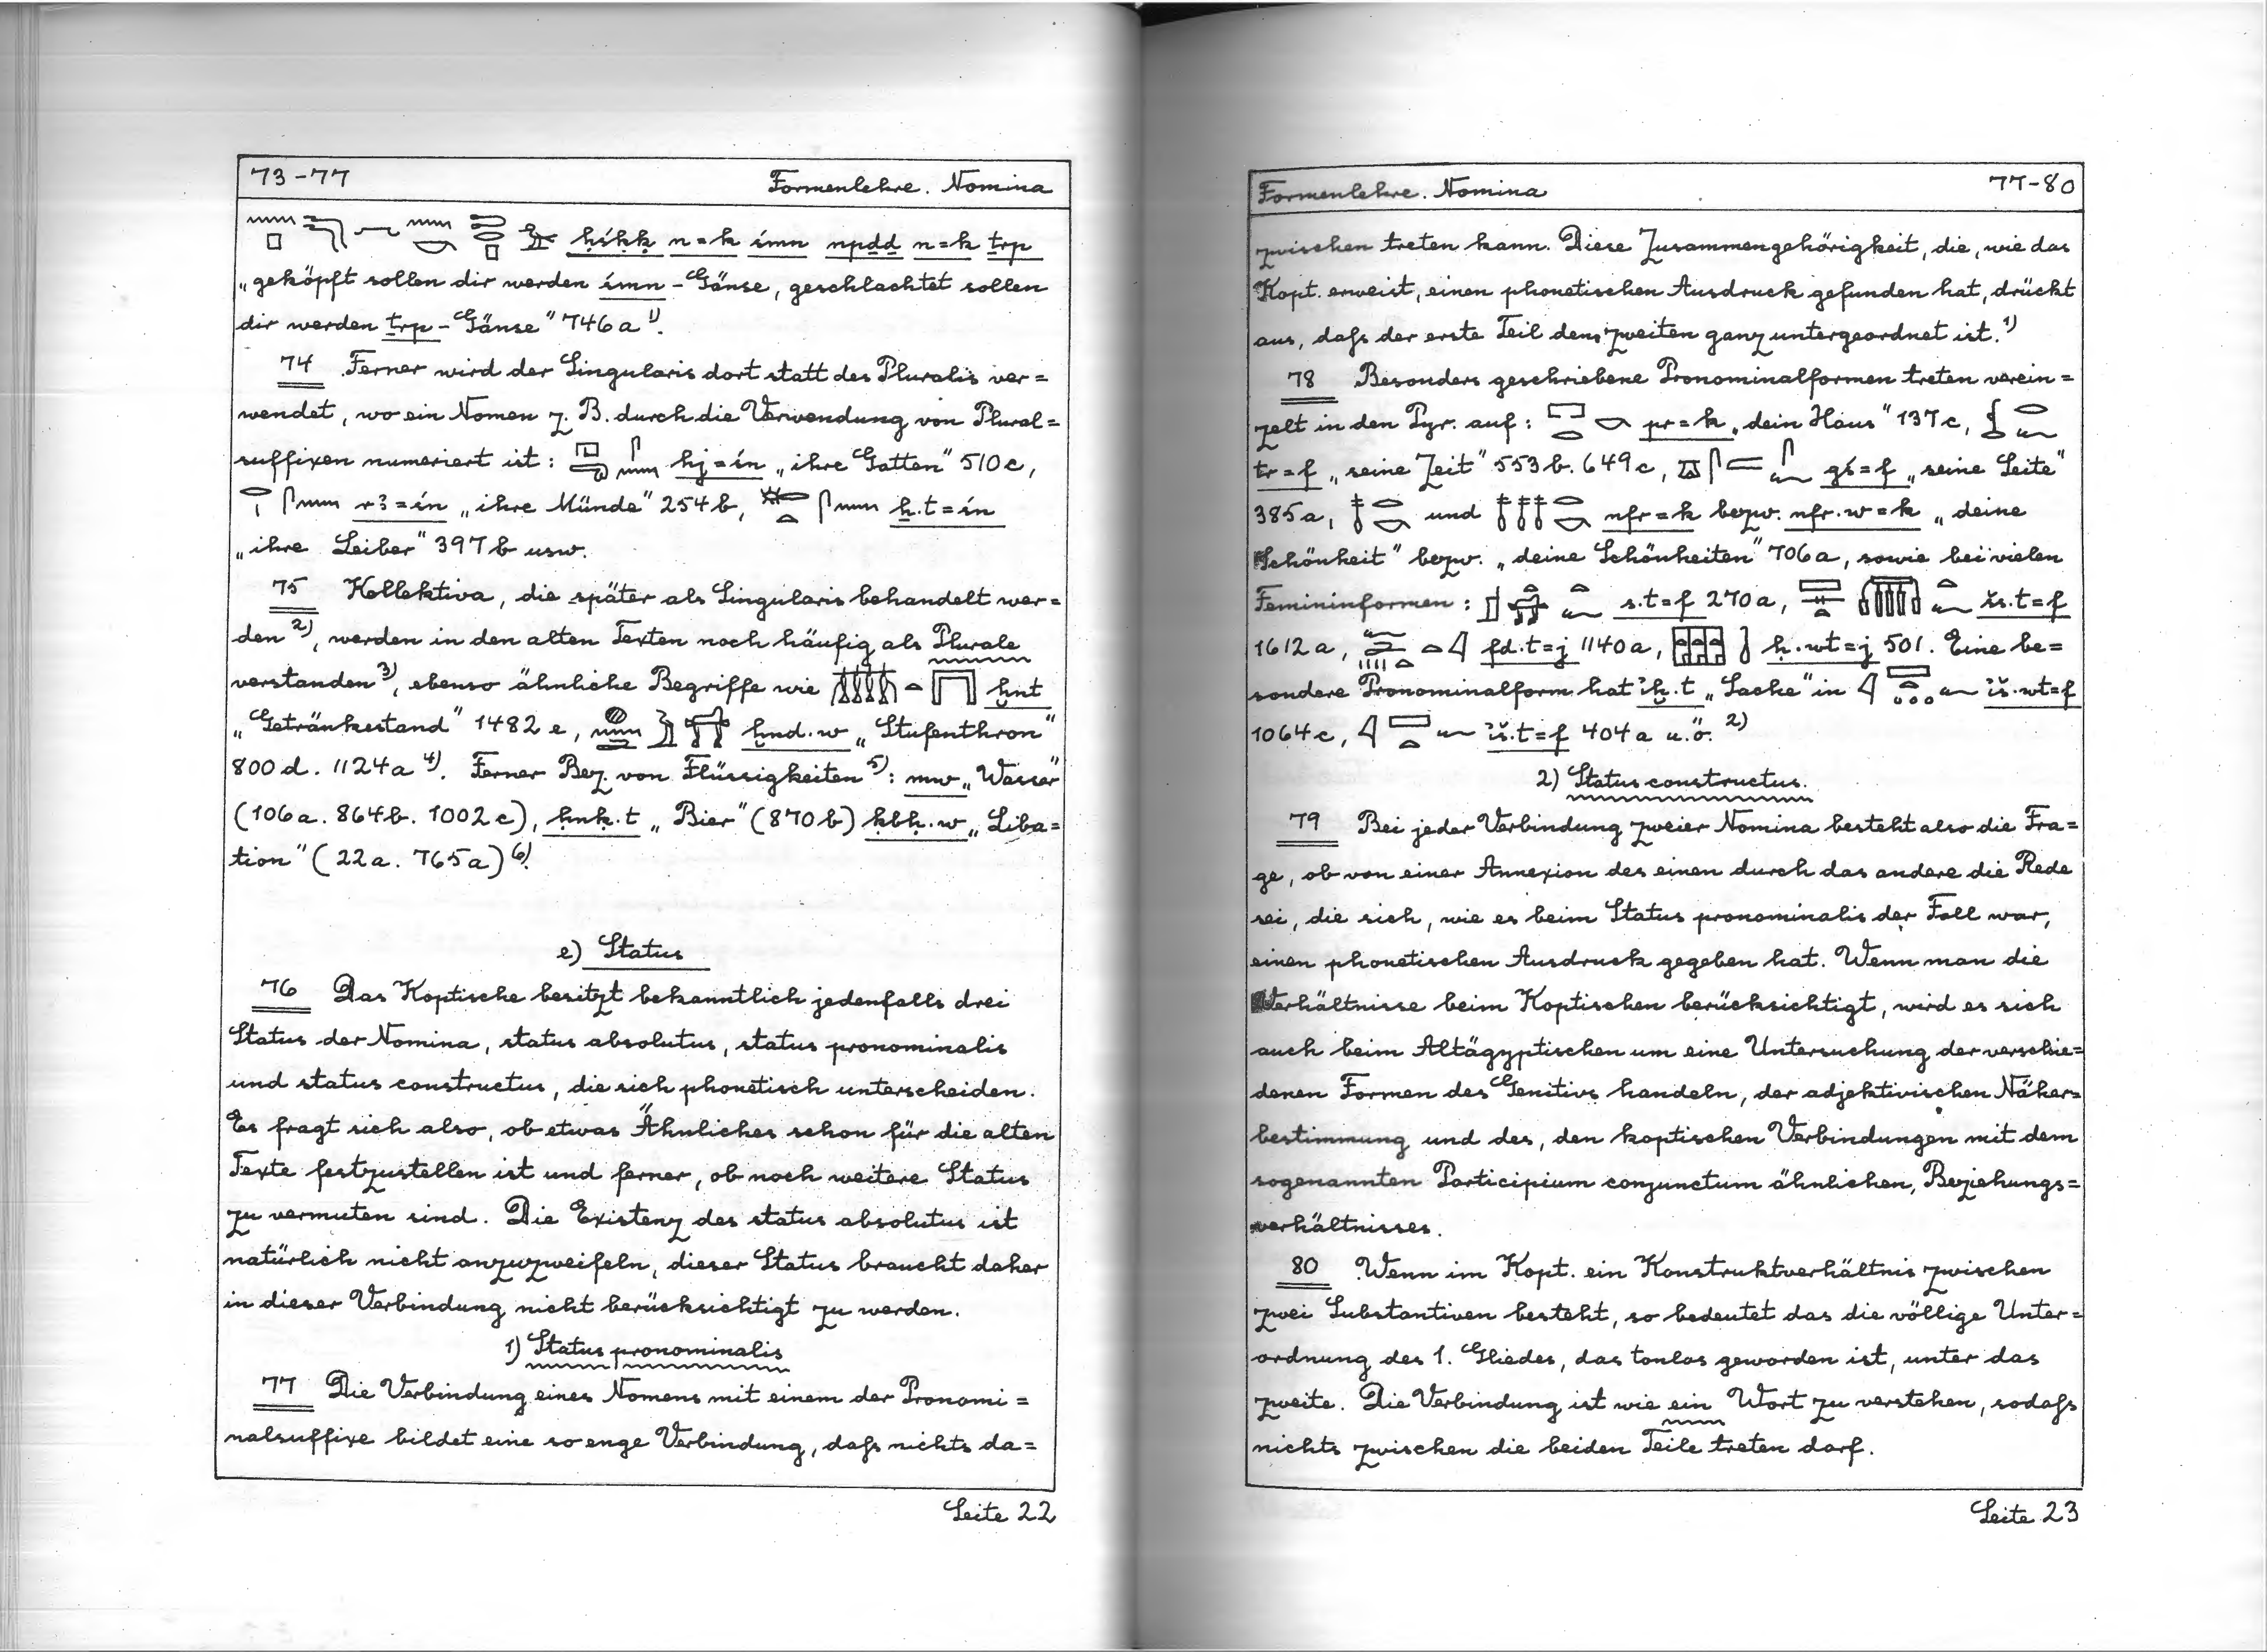 73-77 Formenlehre. Nomina
ḥśḳḳ n=k śmn npḏḏ n=k ṯrp
„geköpft sollen dir werden śmn-Gänse, geschlachtet sollen
dir werden ṯrp-Gänse" 746a 1).
74 Ferner wird der Singularis dort statt des Pluralis ver=
wendet, wo ein Nomen z.B. durch die Verwendung von Plural=
suffixen numeriert ist: hj=śn „ihre Gatten" 510c,
r3=śn „ihre Münde" 254b, ẖ.t=śn
„ihre Leiber" 397b usw.
75 Kollektiva, die später als Singularis behandelt wer=
den 2), werden in den alten Texten noch häufig als Plurale
verstanden 3), ebenso ähnliche Begriffe wie ḫnt
„Getränkestand" 1482e, ḫnd.w „Stufenthron"
800d. 1124a 4). Ferner Bez. von Flüssigkeiten 5): mw „Wasser"
(106a. 864b. 1002c), ḥnḳ.t „Bier" (870b) ḳbḥ.w „Liba=
tion" (22a. 765a) 6).
e) Status
76 Das Koptische besitzt bekanntlich jedenfalls drei
Status der Nomina, status absolutus, status pronominalis
und status constructus, die sich phonetisch unterscheiden.
Es fragt sich also, ob etwas Ähnliches schon für die alten
Texte festzustellen ist und ferner, ob noch weitere Status
zu vermuten sind. Die Existenz des status absolutus ist
natürlich nicht anzuzweifeln, dieser Status braucht daher
in dieser Verbindung nicht berücksichtigt zu werden.
1) Status pronominalis
77 Die Verbindung eines Nomens mit einem der Pronomi=
nalsuffixe bildet eine so enge Verbindung, daß nichts da=
Seite 22
Formenlehre. Nomina 77-80
zwischen treten kann. Diese Zusammengehörigkeit, die, wie das
Kopt. erweist, einen phonetischen Ausdruck gefunden hat, drückt
aus, daß der erste Teil dem zweiten ganz untergeordnet ist. 1)
78 Besonders geschriebene Pronominalformen treten verein=
zelt in den Pyr. auf: pr=k „dein Haus" 137c,
tr=f „seine Zeit" 553b. 649c, gś=f „seine Seite"
385a, und nfr=k bezw. nfr.w=k „deine
Schönheit" bezw. „deine Schönheiten" 706a, sowie bei vielen
Femininformen: s.t=f 270a, šs.t=f
1612a, fd.t=j 1140a, ḥ.wt=j 501. Eine be=
sondere Pronominalform hat ı͗ḫ.t „Sache" in ı͗š.wt=f
1064c, ı͗š.t=f 404a u.ö. 2)
2) Status constructus.
79 Bei jeder Verbindung zweier Nomina besteht also die Fra=
ge, ob von einer Annexion des einen durch das andere die Rede
sei, die sich, wie es beim Status pronominalis der Fall war,
einen phonetischen Ausdruck gegeben hat. Wenn man die
Verhältnisse beim Koptischen berücksichtigt, wird es sich
auch beim Altägyptischen um eine Untersuchung der verschie=
denen Formen des Genitivs handeln, der adjektivischen Näher=
bestimmung und des, den koptischen Verbindungen mit dem
sogenannten Participium conjunctum ähnlichen, Beziehungs=
verhältnisses.
80 Wenn im Kopt. ein Konstruktverhältnis zwischen
zwei Substantiven besteht, so bedeutet das die völlige Unter=
ordnung des 1. Gliedes, das tonlos geworden ist, unter das
zweite. Die Verbindung ist wie ein Wort zu verstehen, sodaß
nichts zwischen die beiden Teile treten darf.
Seite 23